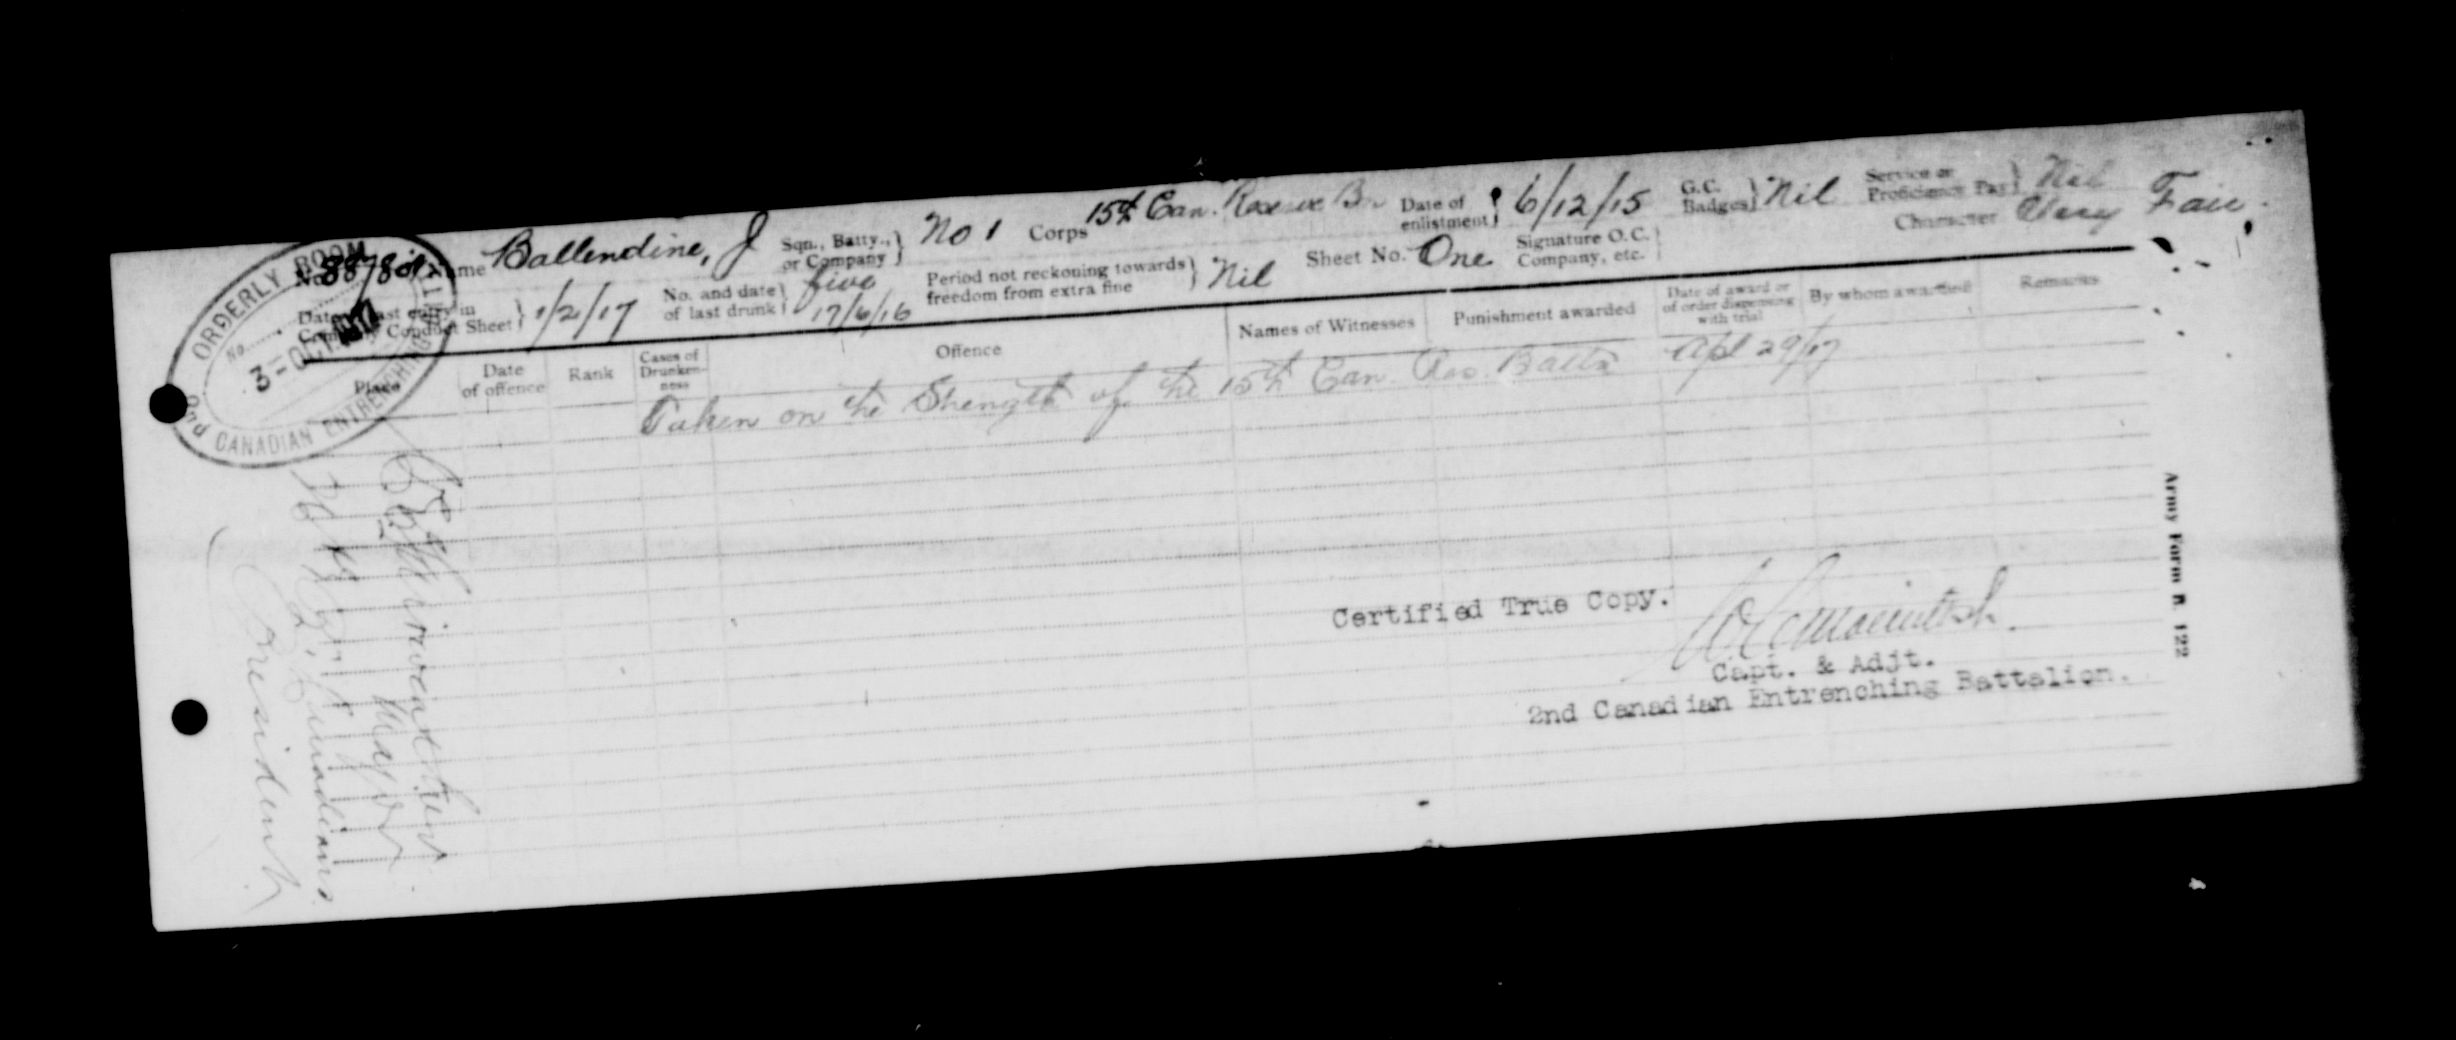 No. 887801 Name Ballendine, J Sqn., Batty., or Company } No 1 Corps 15th Can. Reserve Bn Date of enlistment } 6/12/15 G.C. Badges } Nil Service or Proficiency Pay } Nil
Date of last entry in Company Conduct Sheet } 1/2/17 No. and date of last drunk } five 17/6/16 Period not reckoning towards freedom from extra fine } Nil Sheet No. One Signature O.C. Company, etc. } Character Very Fair.
Place Date of offence Rank Cases of Drunkenness Offence Names of Witnesses Punishment awarded Date of award or of order dispensing with trial By whom awarded Remarks
Taken on the Strength of the 15th Can. Res. Battn Apl 29/17
ORDERLY ROOM
No.
3-OCT 1917
2nd CANADIAN ENTRENCHING
Major
Canadians
President
Certified True Copy.
Capt. & Adjt.
2nd Canadian Entrenching Battalion.
Army Form B 122